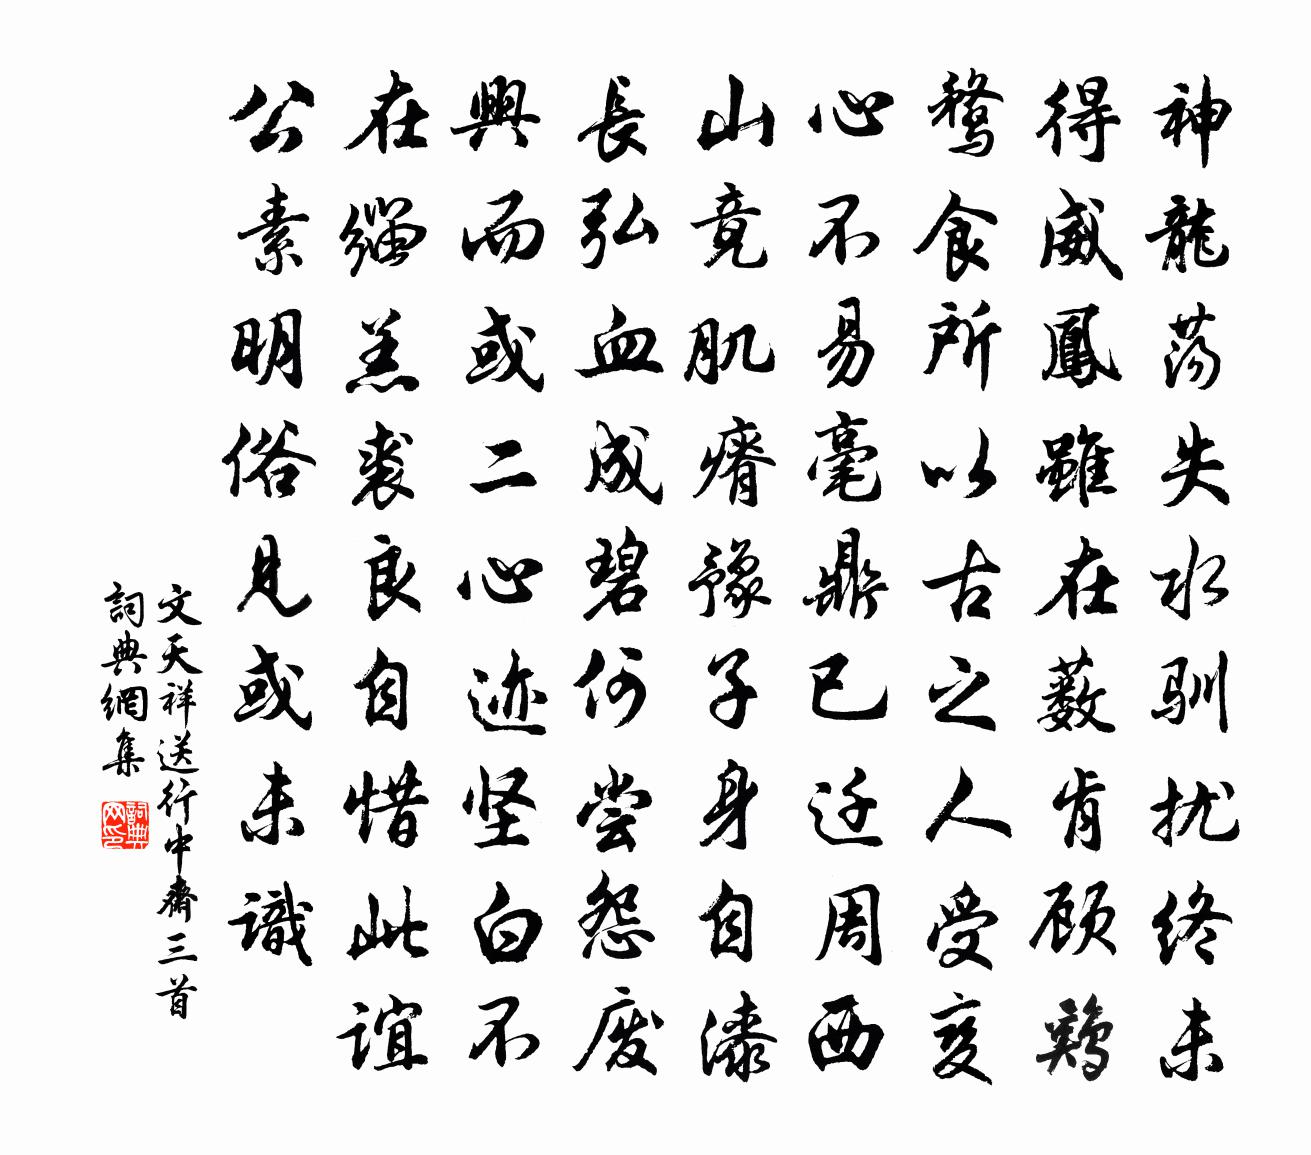 神龍蕩失水馴扰終未
得威鳳雖在藪肯顾鷄
鶩食所以古之人受变
心不易毫鼎已迁周西
山竟肌瘠豫子身自漆
長弘血成碧何尝怨废
興而或二心迹坚白不
在緇羔裘良自惜此谊
公素明俗見或未識
文天祥送行中齋三首
詞典網集
詞典网印